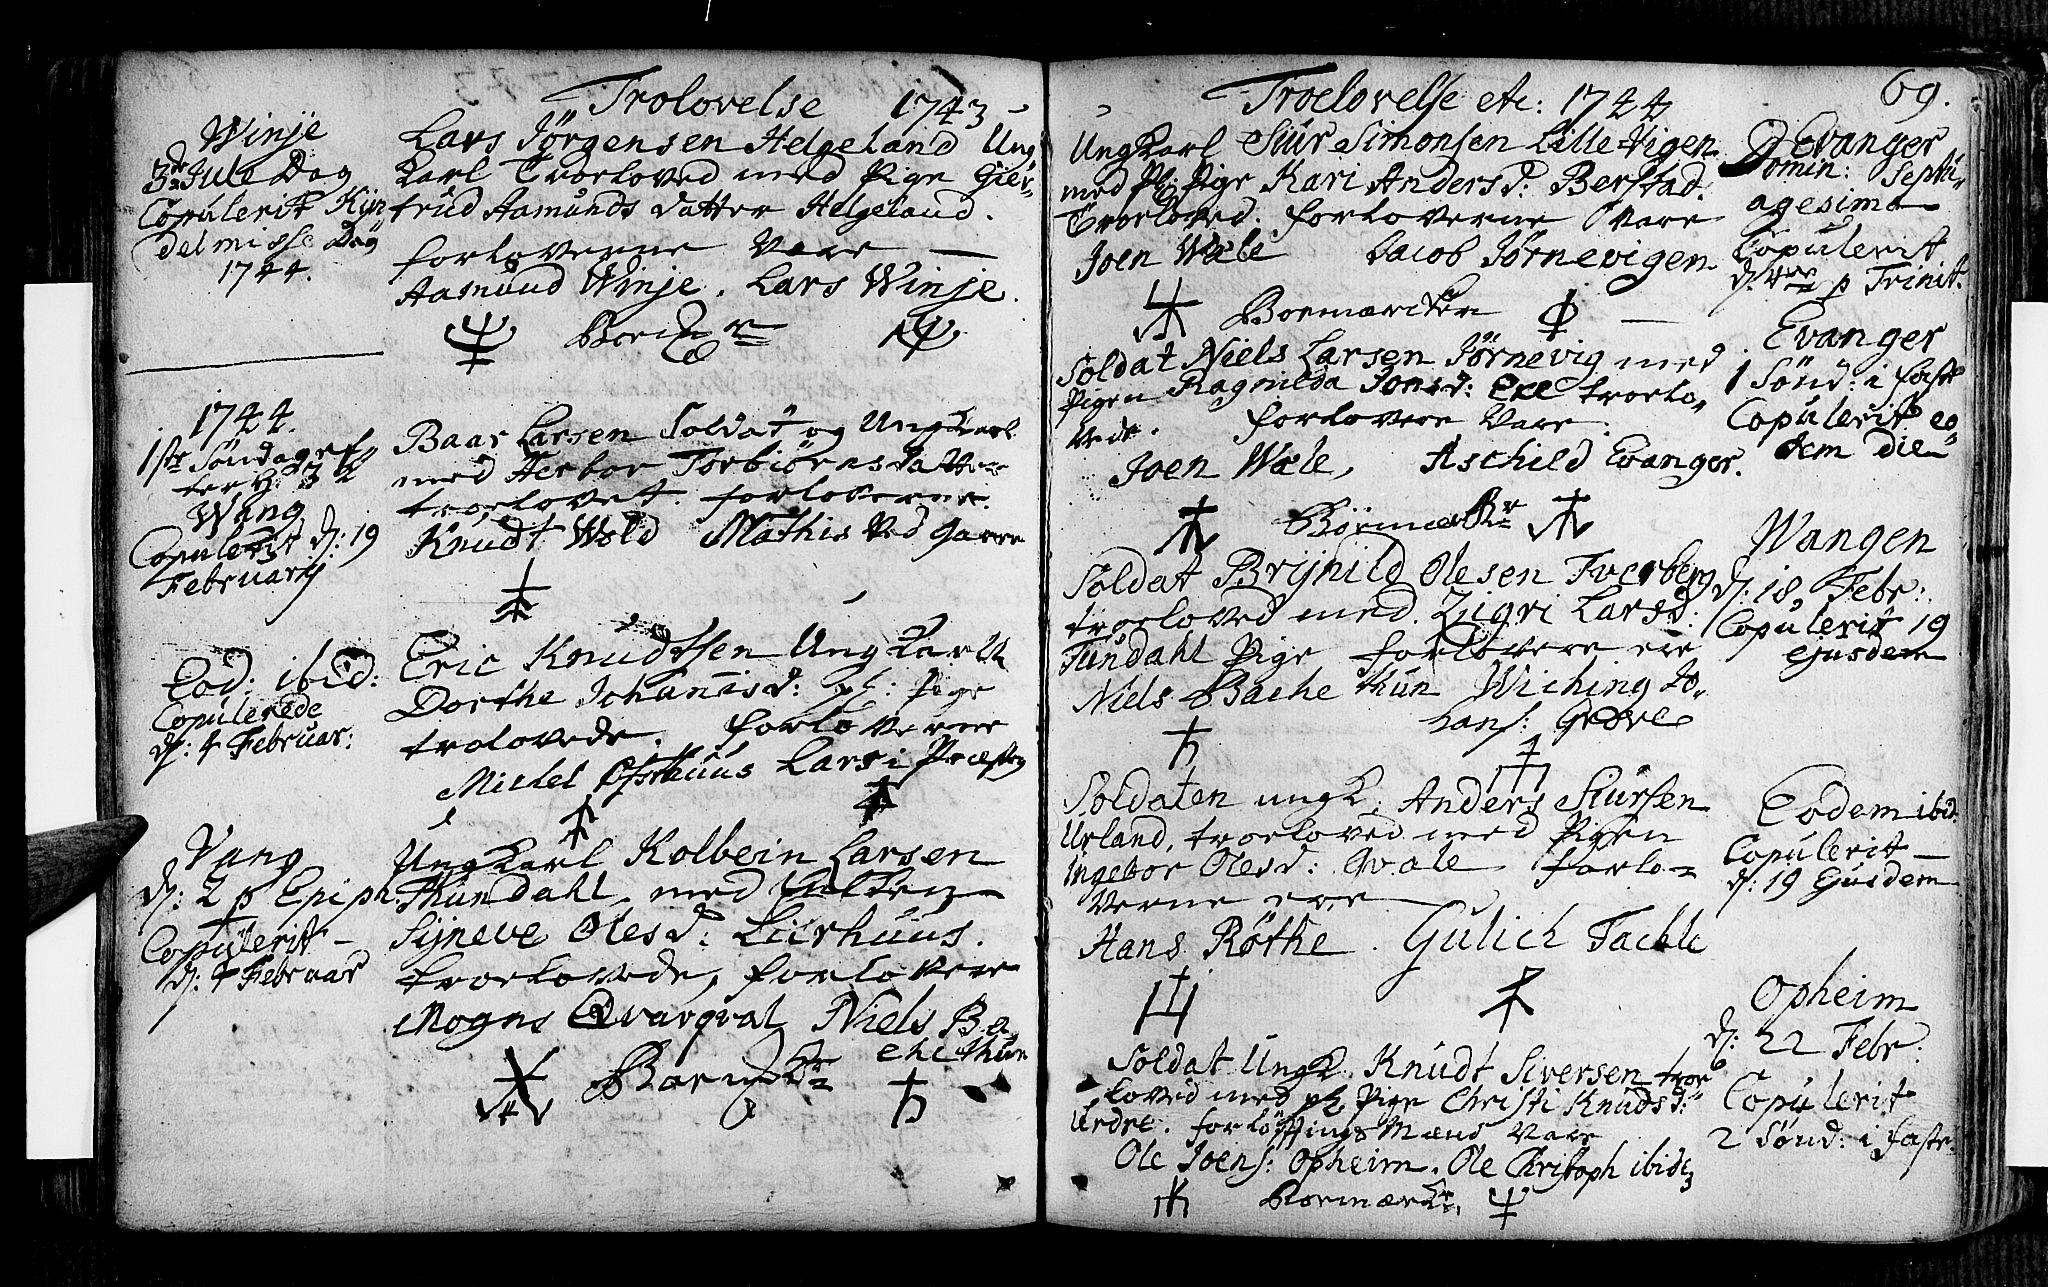 Trolovelse 1743
Winje
3die Jule Dag
Copulerit Kyn
delmisse Dag
1744.
Lars Jørgensen Helgeland Ung
Karl Troeloved med Pige Gier-
trud Aamunds datter Helgeland.
forloverne vare —
Aasmund Winje. Lars Winje.
1744.
1ste Søndag ef-
ter H: 3 K
Wang
Copulerit d: 19
Februarij
Baar Larsen Soldat og Ungkarl
med Herbor Torbiørnsdatter
troelovet. forloverne.
Knudt Wold Mathis Ved Garen
Eod: ibid:
Copulerede
d: 4 Februar:
Eric Knudtsen Ungkarl
Dorthe Johannisd: pl: Pige
trolovede. forloverne
Michel Lars i Præsteg
Vang
d: 2 p Epiph.
Copulerit —
d: 4 Februar
Ungkarl Kolbein Larsen
Thundahl, med
Sijneve Olesd: Liirhuus.
troelovede, forlovere
Mogns Qvarqval Niels Ba
che Thun
69.
Troelovelse etc: 1744
Ungkarl Siur Simonsen Lille Higen
med Pl: Pige Kari Andersd: Berstad.
Troeloved. forloverne vare
Joen Wæle Jacob Jørnevigen
Bormærcker
Evanger
Domin: Septu-
agesima
Copulerit
p Trinit.
Soldat Niels Larsen Jørnevig med
Pigen Ragnilda Jonsd: Exe troelo-
vede. forlovere vare.
Joen Wæle, Aschild Evanger.
Evanger
1 Sønd: i faste
Copulerit eo
dem die
Soldat Brijnild Olesen Tverberg
troeloved med Zigri Larsd:
Tundahl Pige forlovere ere
Niels Bache Thun Wiching To-
Lans: Grøve
Wangen
d: 18 Febr:
Copulerit 19
ejusdem
Soldaten ungk: Anders Siursen
Urland, troeloved med Pigen
Ingebor Olesd: Qvale forlo-
verne ere
Hans Røthe. Gulich Tachle
Eodem ibid.
Copulerit —
d: 19 Ejusdem
Soldat Ungk. Knudt Siversen troe
loved med pl. Pige Christi Knudsd:
Urdre. forløftnings Mænd vare
Ole Joens: Opheim. Ole Christoph ibidem
Opheim
d: 22 Febr:
Copulerit
2 Sønd: i faste